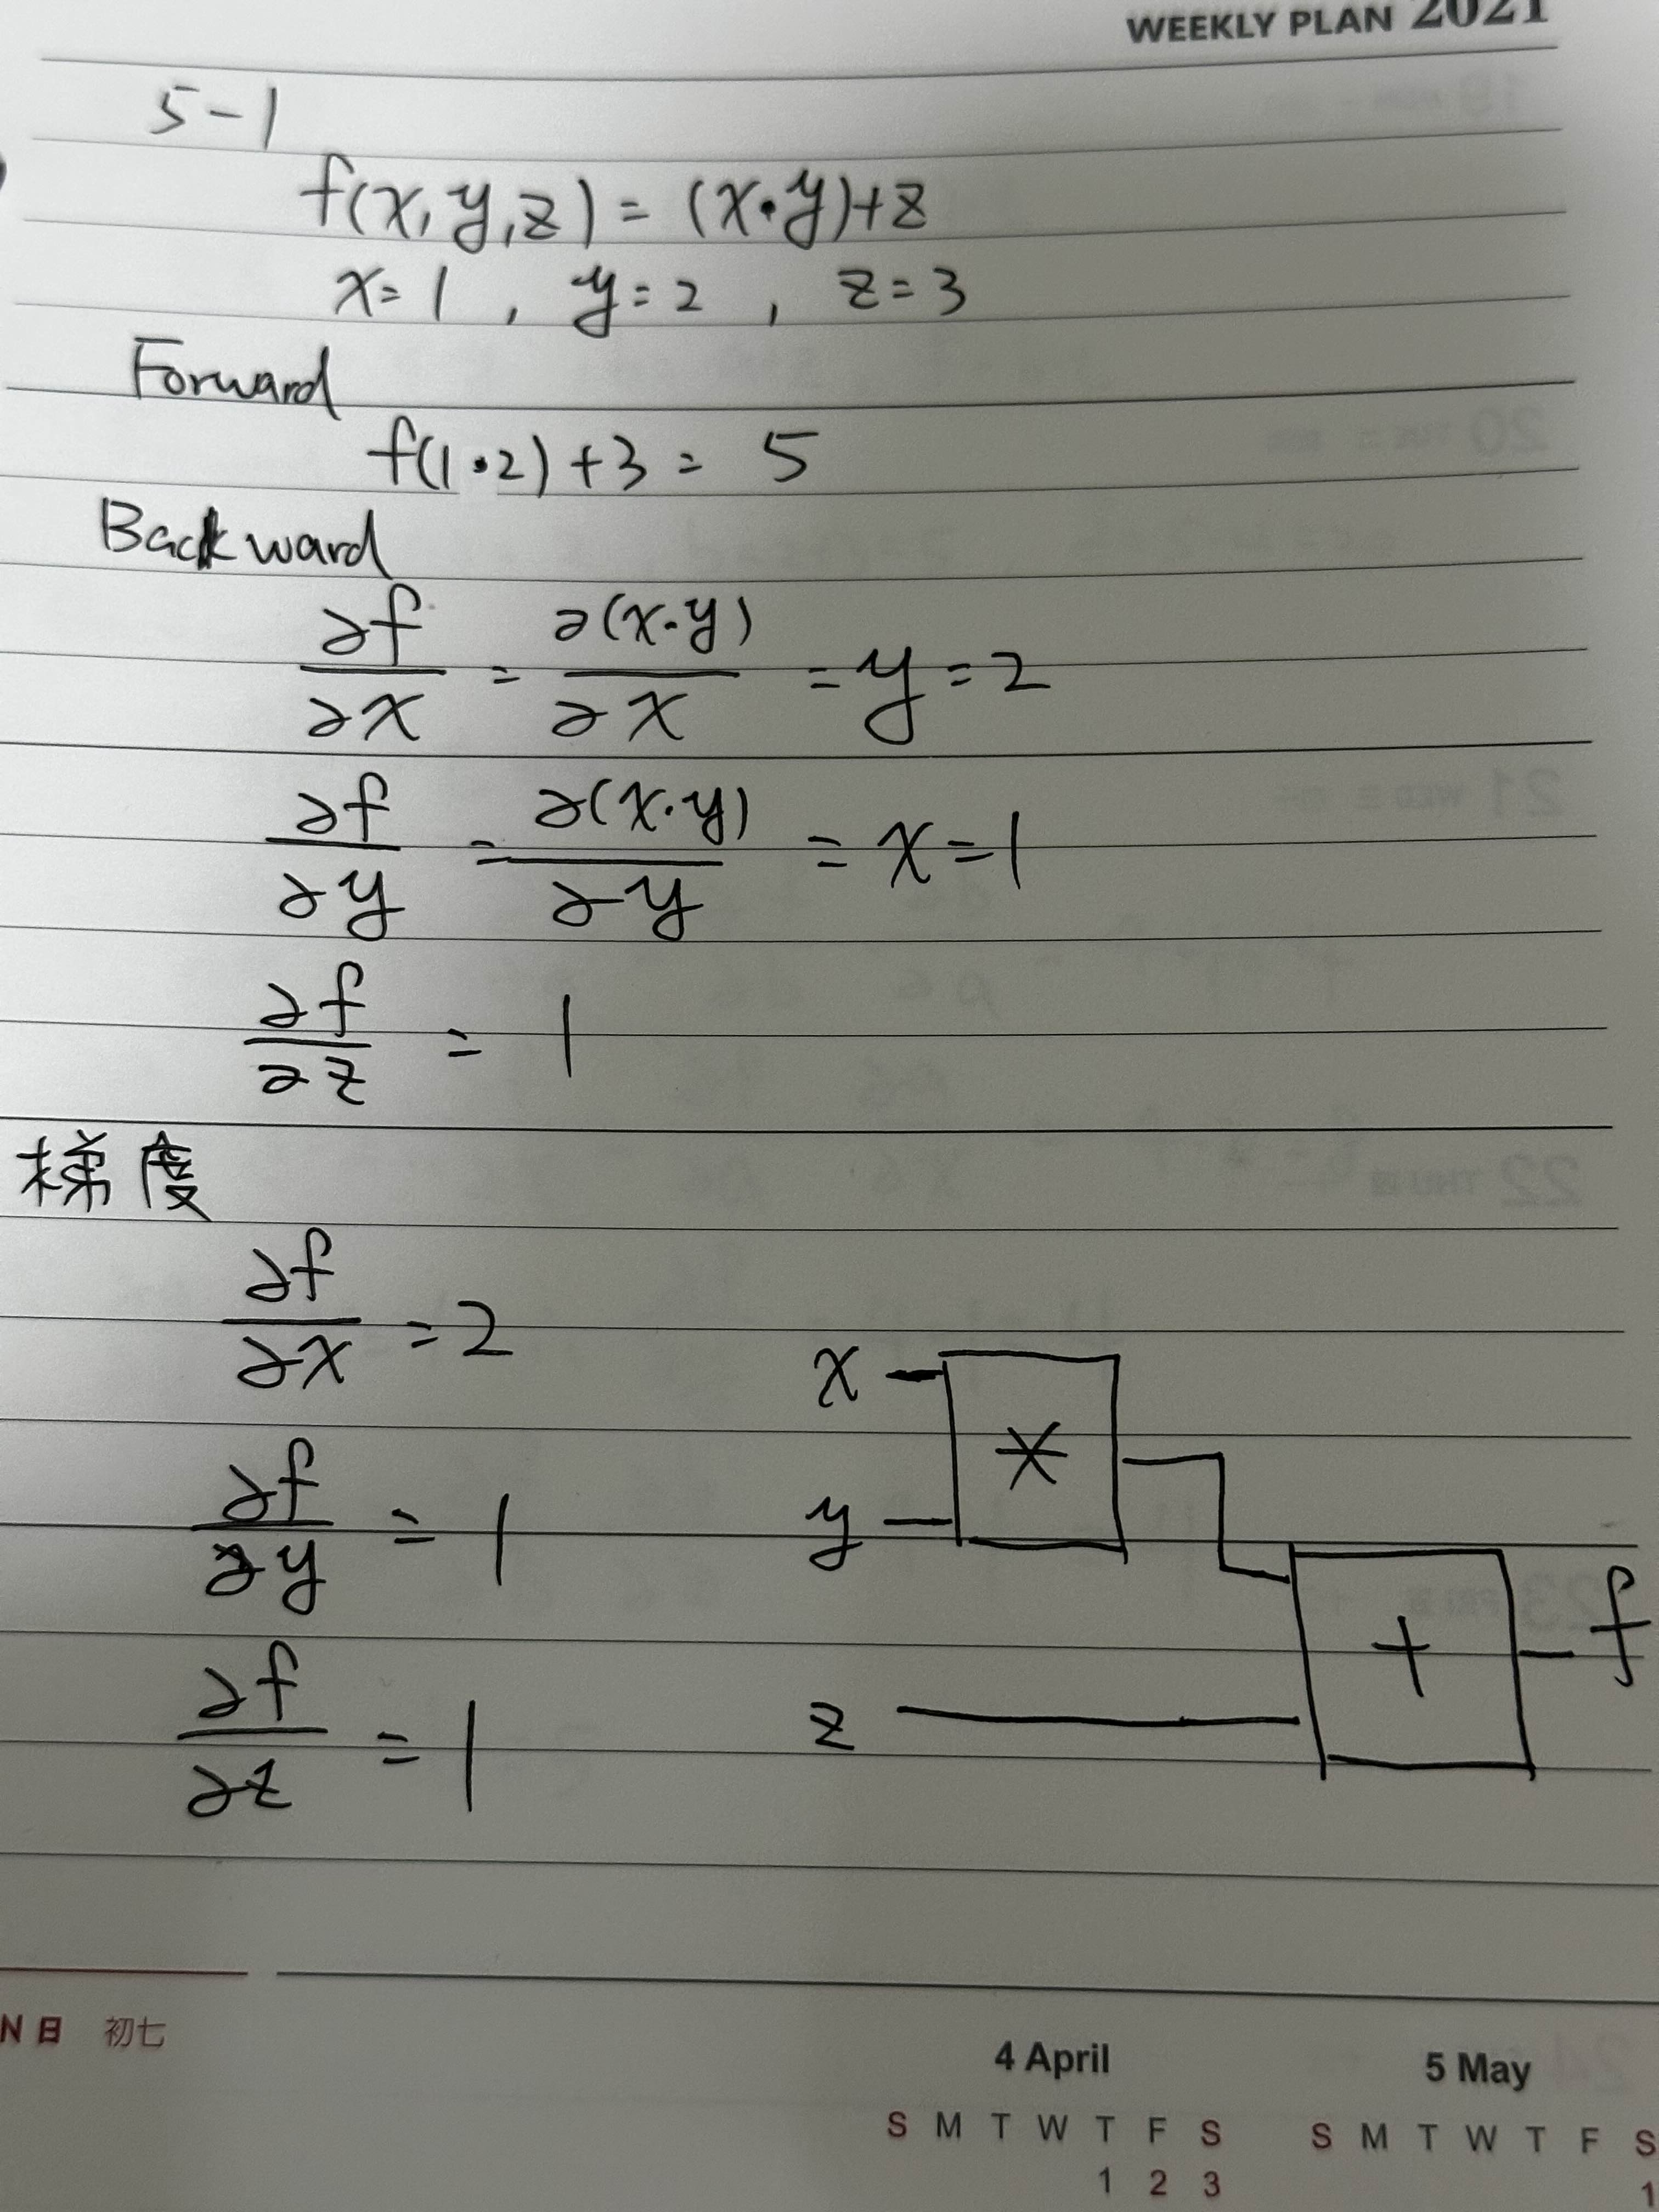 WEEKLY PLAN 2021
5-1
f(x,y,z) = (x·y)+z
x=1 , y=2 , z=3
Forward
f(1·2)+3 = 5
Backward
∂f/∂x = ∂(x·y)/∂x = y = 2
∂f/∂y = ∂(x·y)/∂y = x = 1
∂f/∂z = 1
梯度
∂f/∂x = 2
∂f/∂y = 1
∂f/∂z = 1
x
*
y
+
f
z
N 日 初七
4 April 5 May
S M T W T F S S M T W T F S
1 2 3 1